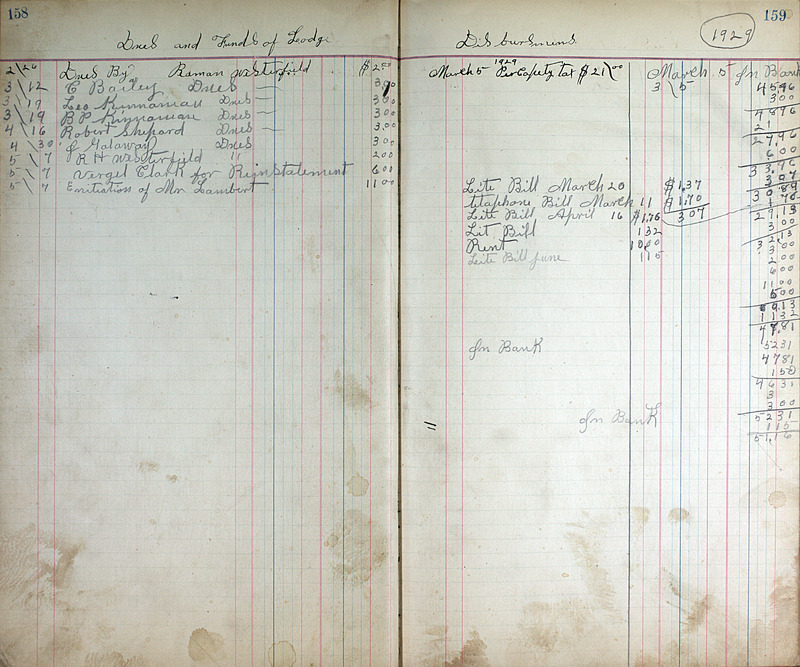 158
Dues and Funds of Lodge
2\26 Dues By Raman Westerfield $2.00
3\12 C Bailey Dues — 3.00
3\19 Leo Kinnaman Dues — 3.00
3\19 B P Kinnaman Dues — 3.00
4\16 Robert Shepard Dues — 3.00
4\30 J Galaway Dues 3.00
5\7 R H Westerfield " 2.00
5\7 Vergel Clark for Reinstatement 6.00
5\7 Enitiation of Mr Lambert 11.00
159
Disbursmens 1929
March 5 1929 Per Capity tax $21\00 March 5 In Bank
3\5 45.96
3.00
48.96
21
27.96
6.00
33.96
3.07
30.89
1.76
29.13
3.00
32.13
3.00
2.00
6.00
11.00
5.00
11.32
47.81
52.31
47.81
1.50
46.31
3
3.00
52.31
1.15
51.16
Lite Bill March 20 $1.37
telaphone Bill March 11 $1.70
Lite Bill April 16 $1.76 3.07
Lit Bill 1.32
Rent 10.00
Leite Bill june 1.15
In Bank
In Bank